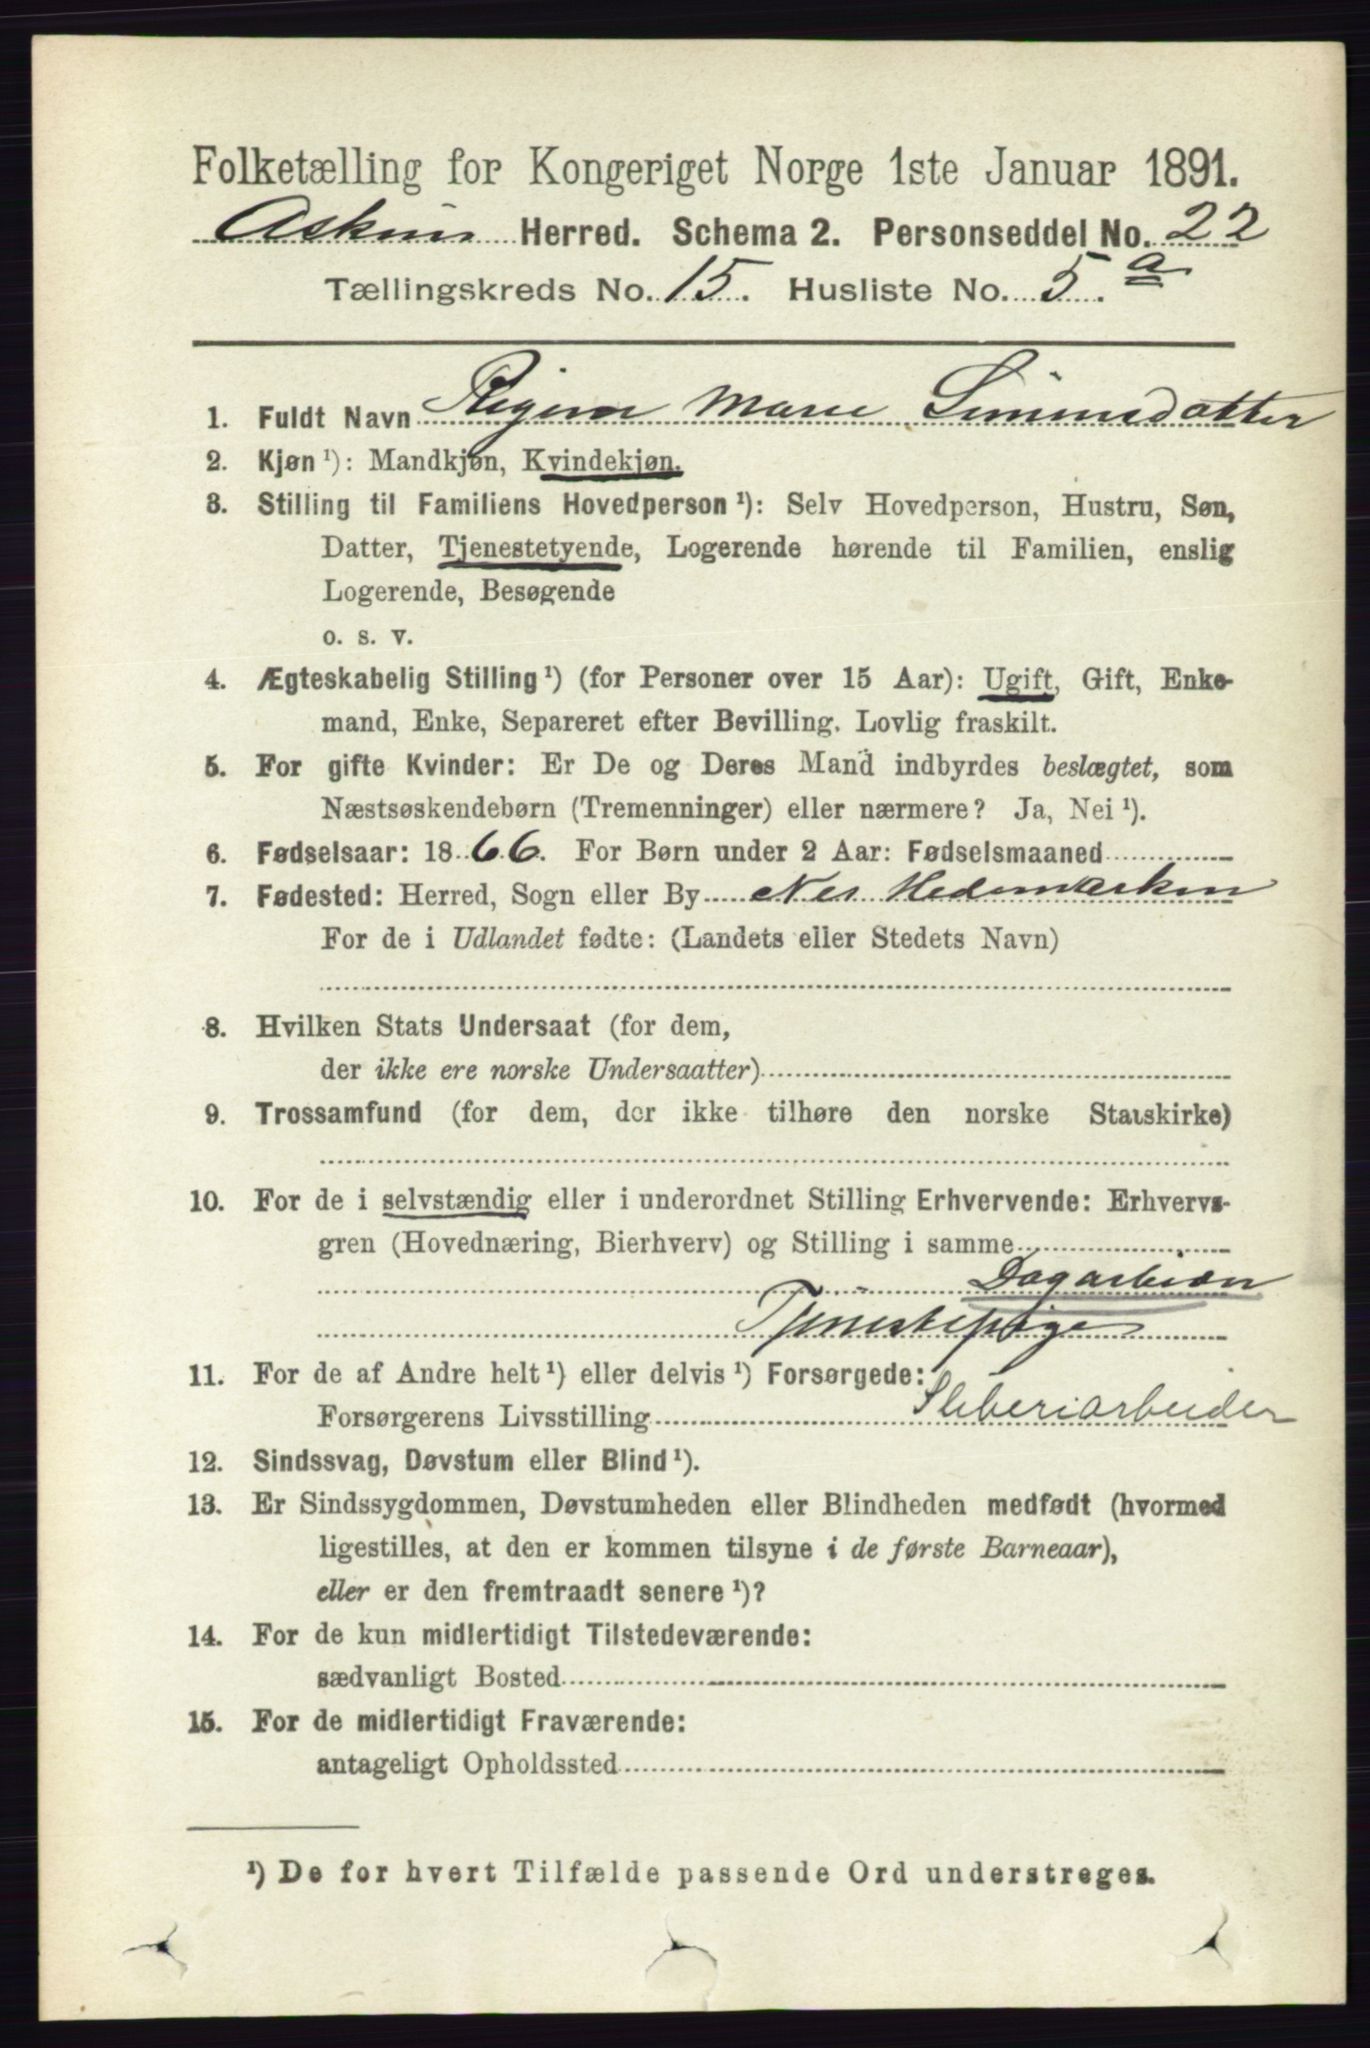 Folketælling for Kongeriget Norge 1ste Januar 1891.
Askim Herred. Schema 2. Personseddel No. 22
Tællingskreds No. 15. Husliste No. 5. a
1. Fuldt Navn Regine Marie Simensdatter
2. Kjøn ¹): Mandkjøn, Kvindekjøn.
3. Stilling til Familiens Hovedperson ¹): Selv Hovedperson, Hustru, Søn,
Datter, Tjenestetyende, Logerende hørende til Familien, enslig
Logerende, Besøgende
o. s. v.
4. Ægteskabelig Stilling ¹) (for Personer over 15 Aar): Ugift, Gift, Enke-
mand, Enke, Separeret efter Bevilling. Lovlig fraskilt.
5. For gifte Kvinder: Er De og Deres Mand indbyrdes beslægtet, som
Næstsøskendebørn (Tremenninger) eller nærmere? Ja, Nei ¹).
6. Fødselsaar: 1866. For Børn under 2 Aar: Fødselsmaaned
7. Fødested: Herred, Sogn eller By Nes Hedemarken
For de i Udlandet fødte: (Landets eller Stedets Navn)
8. Hvilken Stats Undersaat (for dem,
der ikke ere norske Undersaatter)
9. Trossamfund (for dem, der ikke tilhøre den norske Statskirke)
10. For de i selvstændig eller i underordnet Stilling Erhvervende: Erhvervs-
gren (Hovednæring, Bierhverv) og Stilling i samme
Tjenestepige
11. For de af Andre helt ¹) eller delvis ¹) Forsørgede:
Forsørgerens Livsstilling Sliberiarbeider
12. Sindssvag, Døvstum eller Blind ¹).
13. Er Sindssygdommen, Døvstumheden eller Blindheden medfødt (hvormed
ligestilles, at den er kommen tilsyne i de første Barneaar),
eller er den fremtraadt senere ¹)?
14. For de kun midlertidigt Tilstedeværende:
sædvanligt Bosted
15. For de midlertidigt Fraværende:
antageligt Opholdssted
¹) De for hvert Tilfælde passende Ord understreges.